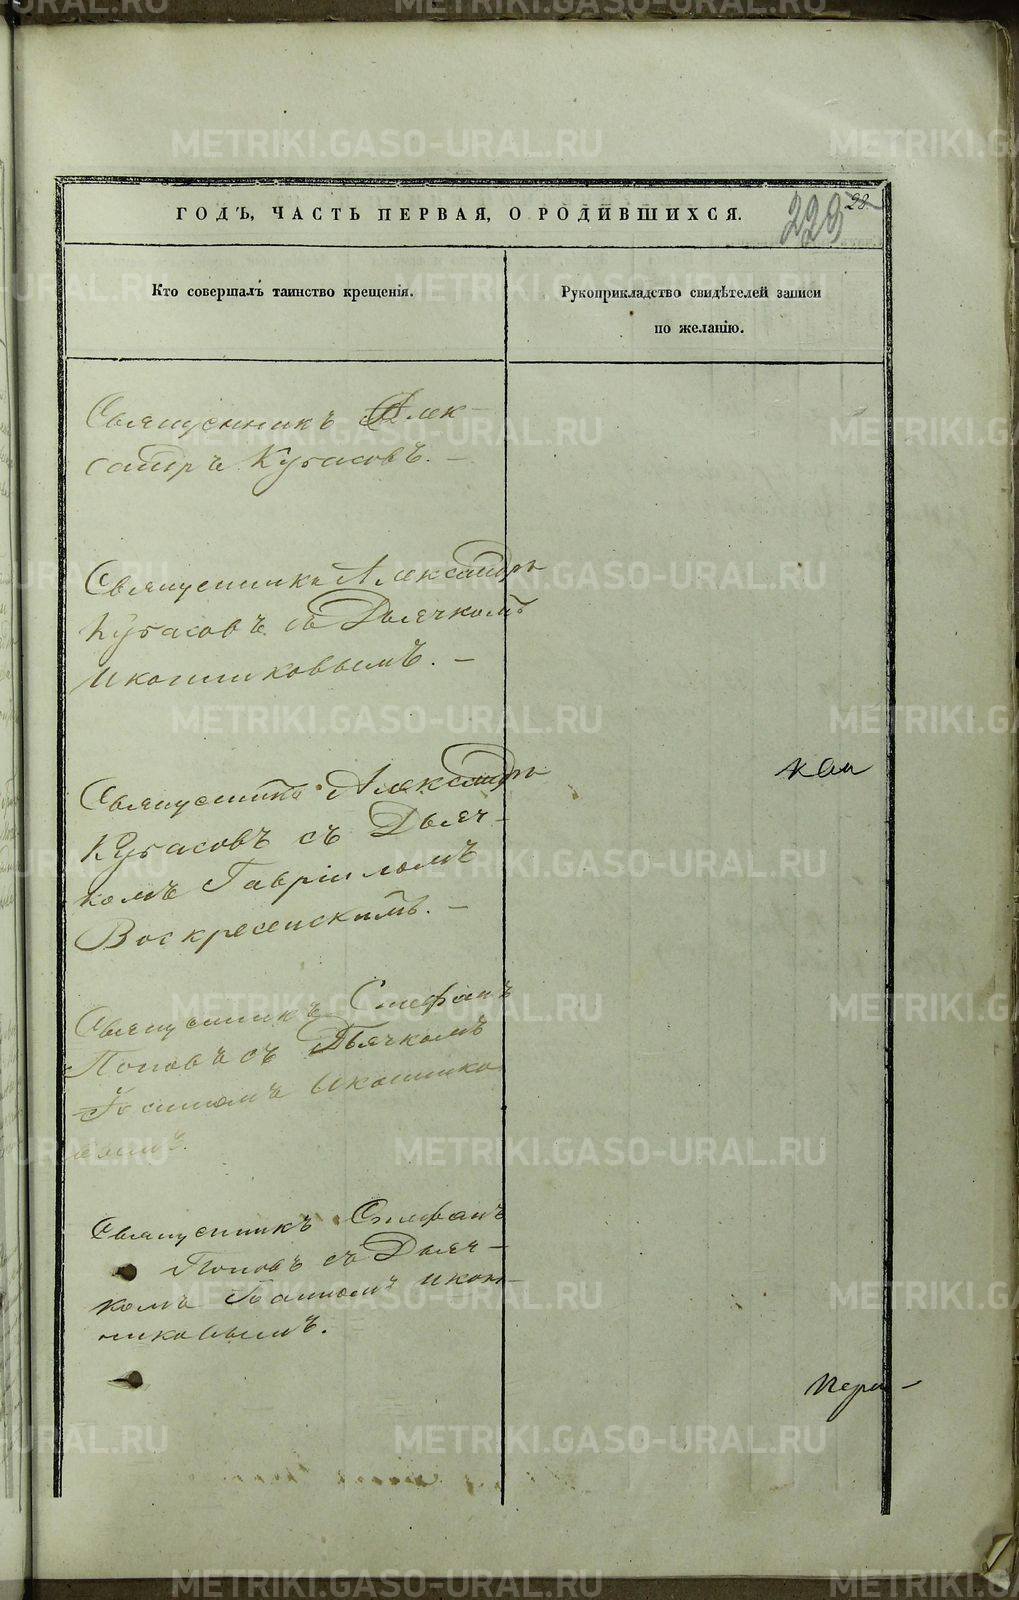 ГОДЪ, ЧАСТЬ ПЕРВАЯ, О РОДИВШИХСЯ.
229 28
Кто совершалъ таинство крещенія.
Рукоприкладство свидѣтелей записи
по желанію.
Священникъ Алек-
сандръ Кубасовъ. –
Священникъ Александръ
Кубасовъ съ Дьячкомъ
Иконниковымъ. –
Священникъ Александръ
Кубасовъ съ Дьяч-
комъ Гавріиломъ
Воскресенскимъ. –
Священникъ Стефанъ
Поповъ съ Дьячкомъ
Іоанномъ Иконнико
вымъ.
Священникъ Стефанъ
Поповъ съ Дьяч-
комъ Іоанномъ Икон-
никовымъ.
METRIKI.GASO-URAL.RU